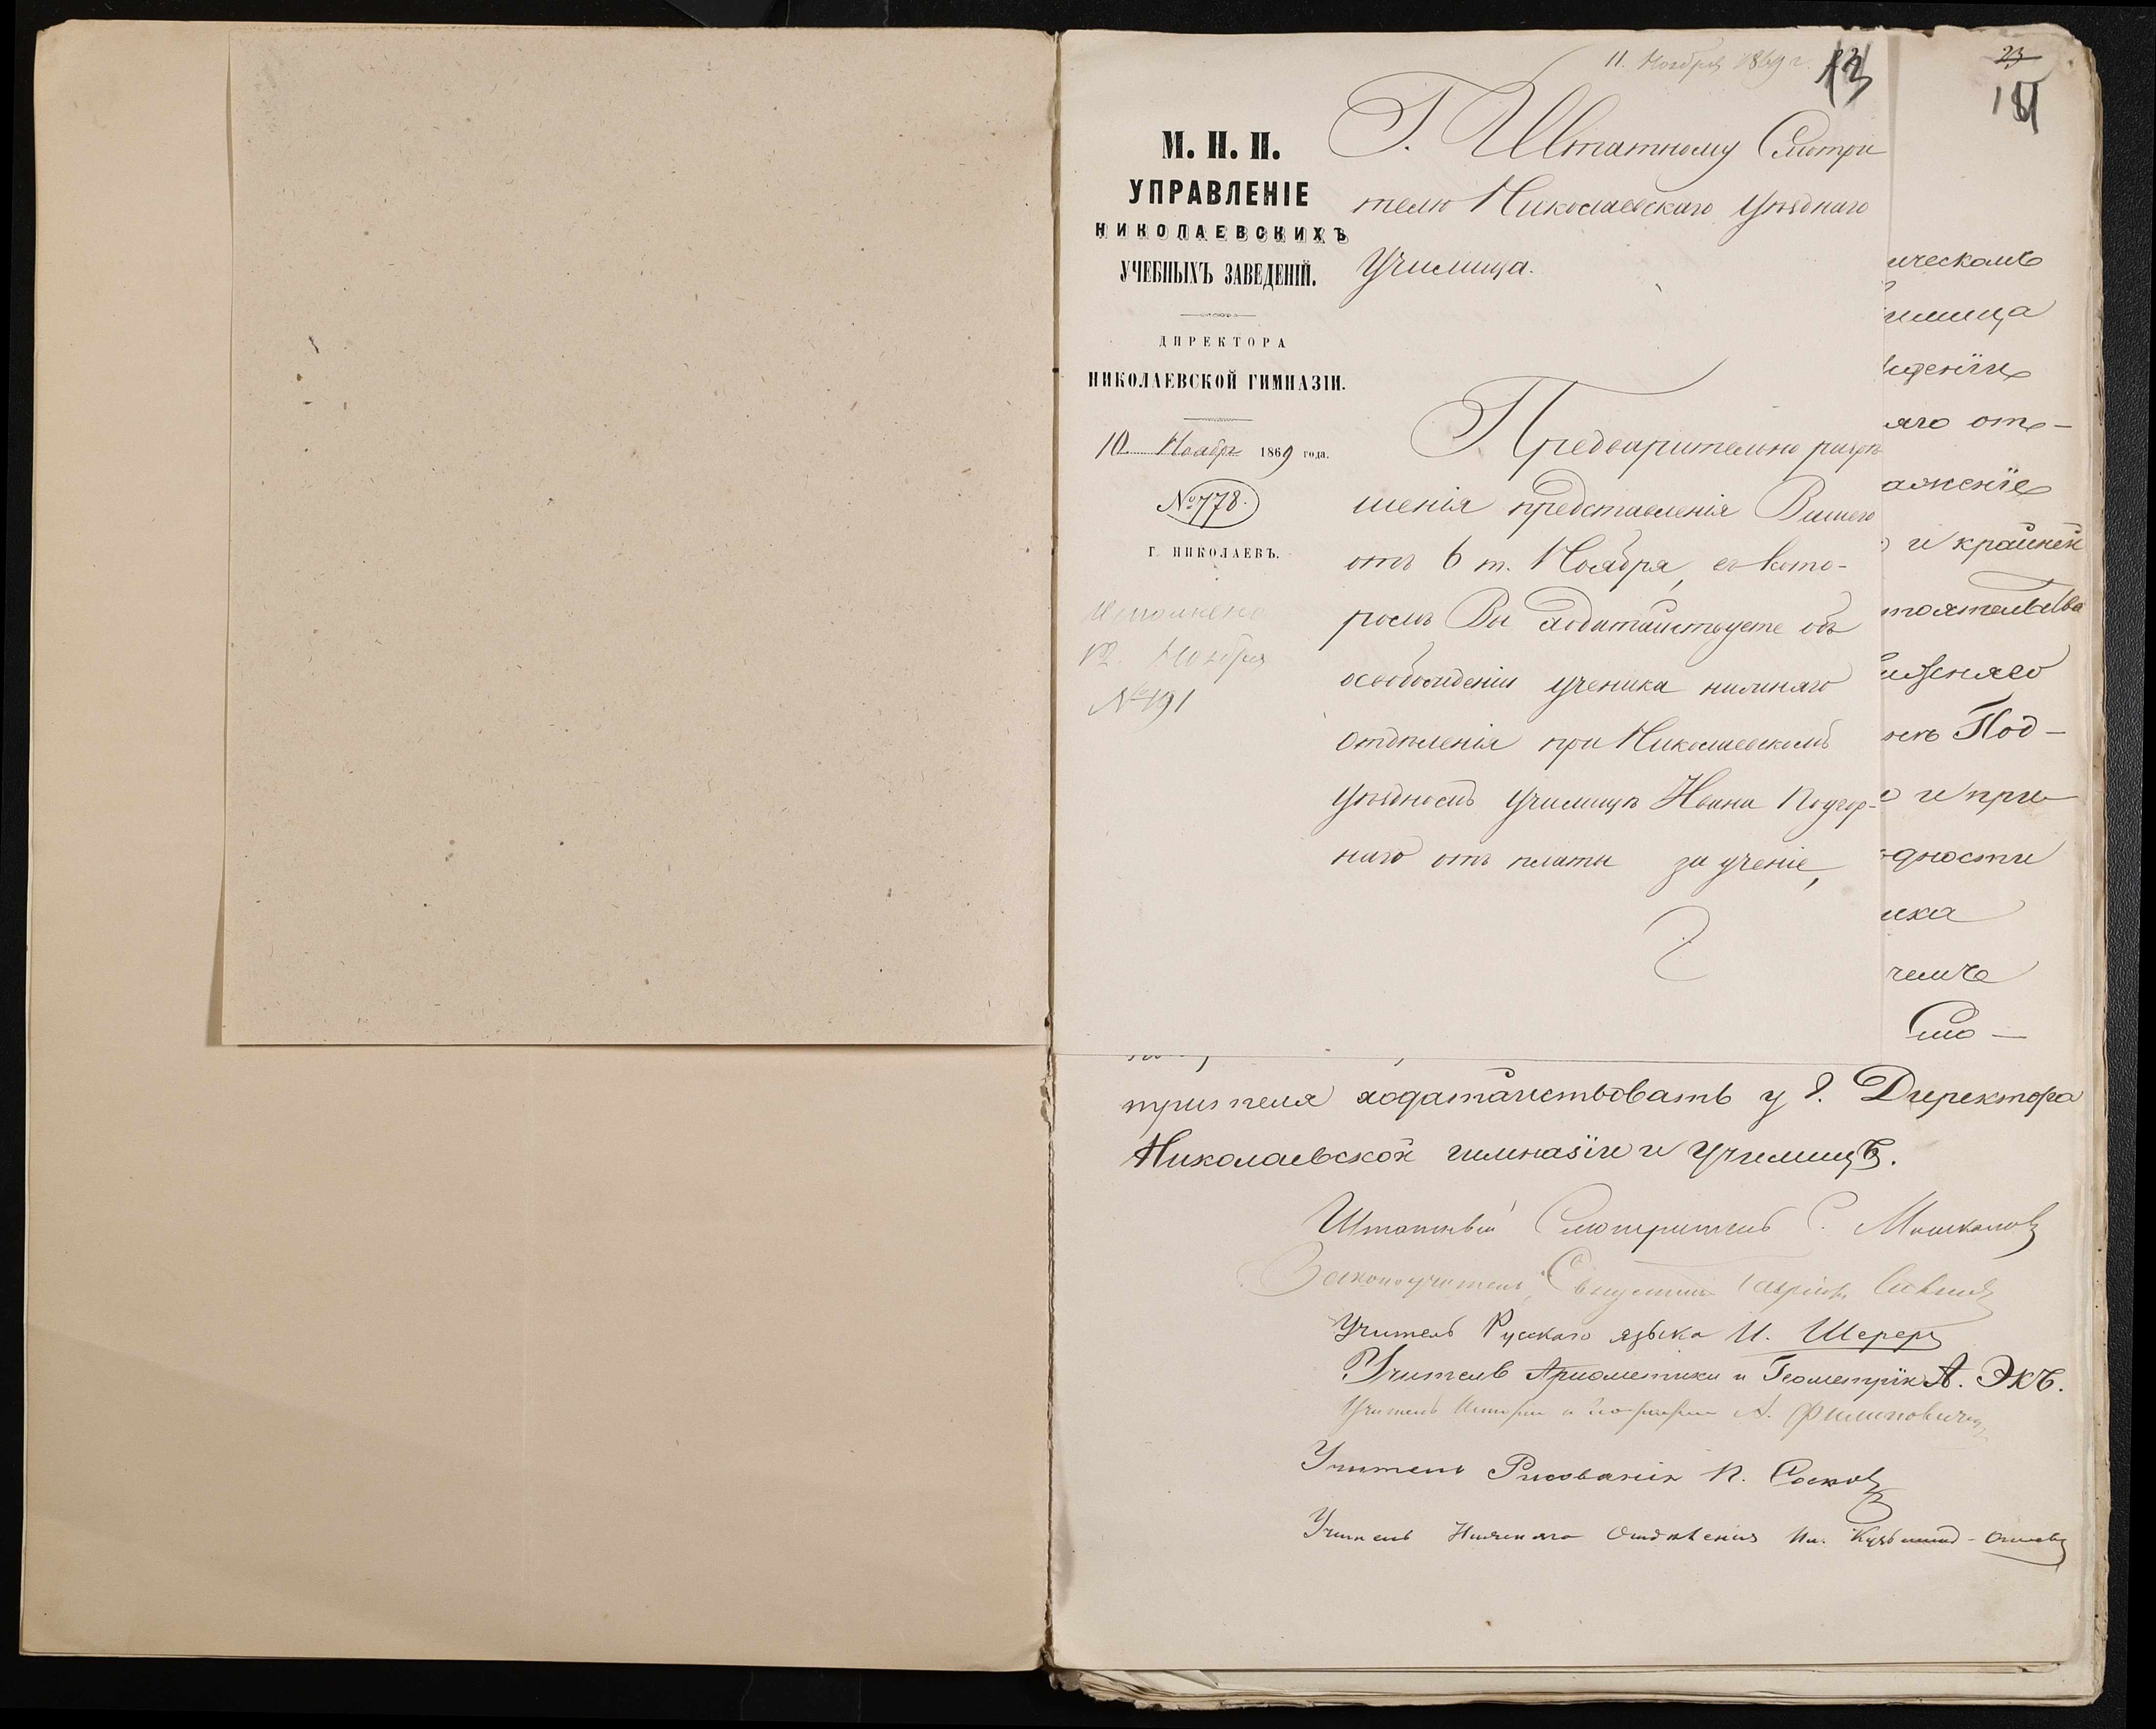 11. Ноября 1869 г.
13
23
М. Н. П.
УПРАВЛЕНІЕ
НИКОЛАЕВСКИХЪ
УЧЕБНЫХЪ ЗАВЕДЕНІЙ.
ДИРЕКТОРА
НИКОЛАЕВСКОЙ ГИМНАЗІИ.
10 Ноябр 1869 года.
№ 778.
Г. НИКОЛАЕВЪ.
Исполнено
12. Ноября
№ 191
Г. Штатному Смотри
телю Николаевскаго Уѣзднаго
Училища.
Предварительно разрѣ
шенія представленія Вашего
отъ 6 т. Ноября, въ кото-
ромъ Вы ходатайствуете объ
освобожденіи ученика низшаго
отдѣленія при Николаевскомъ
Уѣздномъ Училищѣ Ивана Подгор-
наго отъ платы за ученіе,
ическомъ
илища
аго от-
аженіе
и крайней
тоятельства
Под-
и при
дности
ика
чемъ
Смо-
трителя ходатайствовать у Г. Директора
Николаевской гимназіи и Училищъ.
Штатный Смотритель С. Машкановъ
Законоучитель, Священникъ Гавріилъ
Учитель Русскаго языка И. Шереръ
Учитель Ариѳметики и Геометріи А. Экъ.
Учитель Исторіи и Географіи А. Филиповичъ
Учитель Рисованія П. Сосковъ
Учитель Низшаго Отдѣленія Ив. Кузьминъ-